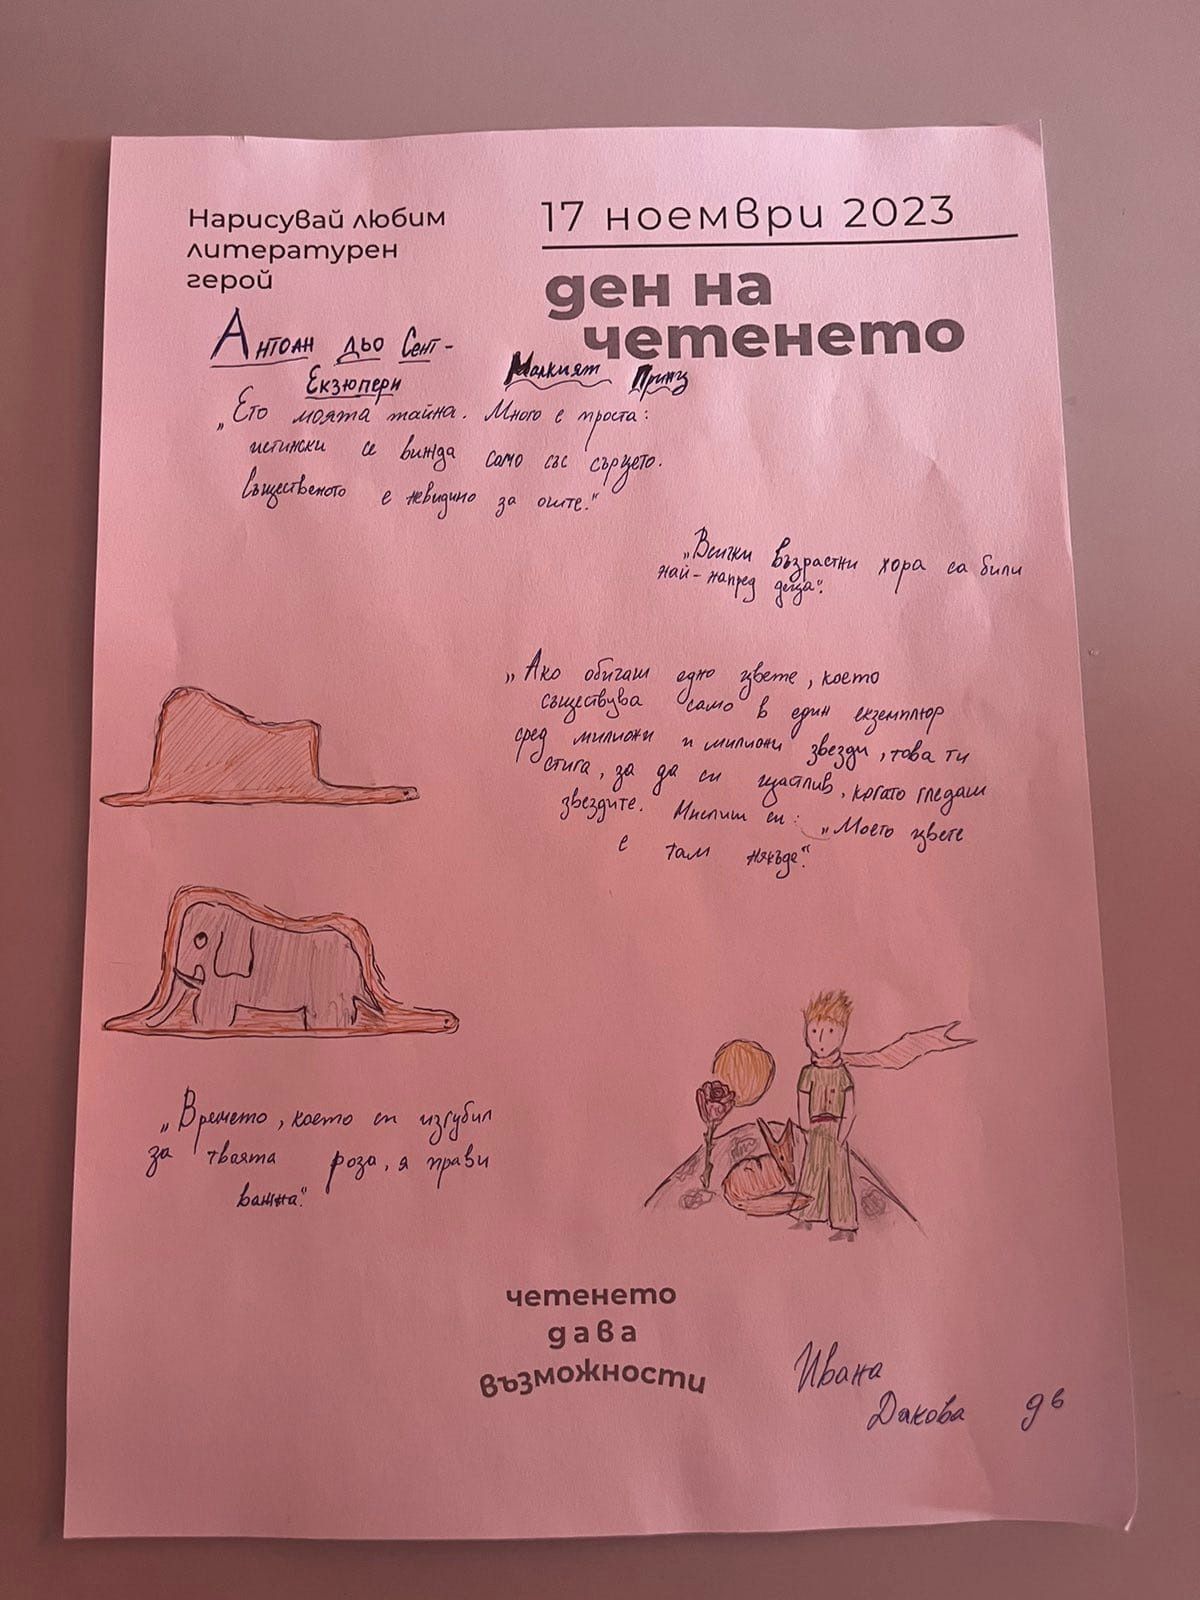 Нарисувай любим
литературен
герой
17 ноември 2023
ден на
четенето
Антоан дьо Сент-
Екзюпери
Малкият Принц
„Ето моята тайна. Много е проста:
истински се вижда само със сърцето.
Същественото е невидимо за очите."
„Всички възрастни хора са били
най-напред деца".
„Ако обичаш едно цвете, което
съществува само в един екземпляр
сред милиони и милиони звезди, това ти
стига, за да си щастлив, когато гледаш
звездите. Мислиш си: „Моето цвете
е там някъде".
„Времето, което си изгубил
за твоята роза, я прави
важна".
четенето
дава
възможности
Ивана
Дакова 9в